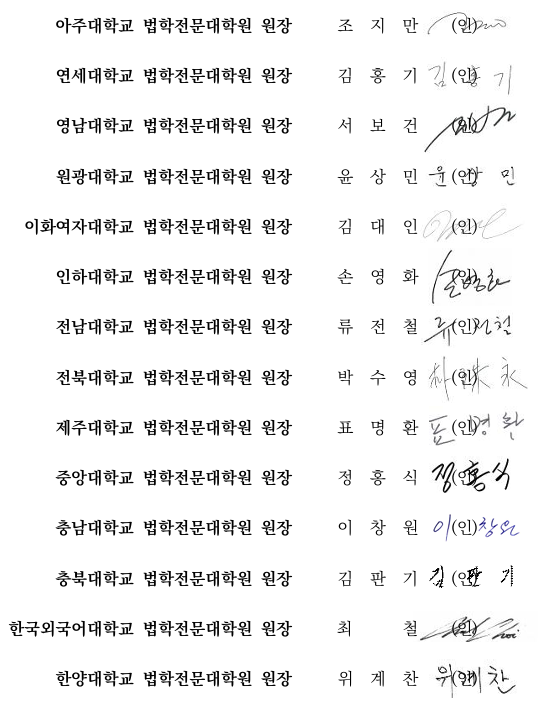 아주대학교 법학전문대학원 원장 조 지 만 (인)
연세대학교 법학전문대학원 원장 김 홍 기 (인) 김 홍 기
영남대학교 법학전문대학원 원장 서 보 건 (인)
원광대학교 법학전문대학원 원장 윤 상 민 (인) 윤 상 민
이화여자대학교 법학전문대학원 원장 김 대 인 (인)
인하대학교 법학전문대학원 원장 손 영 화 (인) 손영화
전남대학교 법학전문대학원 원장 류 전 철 (인) 류전철
전북대학교 법학전문대학원 원장 박 수 영 (인) 朴 洙 永
제주대학교 법학전문대학원 원장 표 명 환 (인) 표 명 환
중앙대학교 법학전문대학원 원장 정 홍 식 (인) 정홍식
충남대학교 법학전문대학원 원장 이 창 원 (인) 이창원
충북대학교 법학전문대학원 원장 김 판 기 (인) 김 판 기
한국외국어대학교 법학전문대학원 원장 최 철 (인)
한양대학교 법학전문대학원 원장 위 계 찬 (인) 위계찬